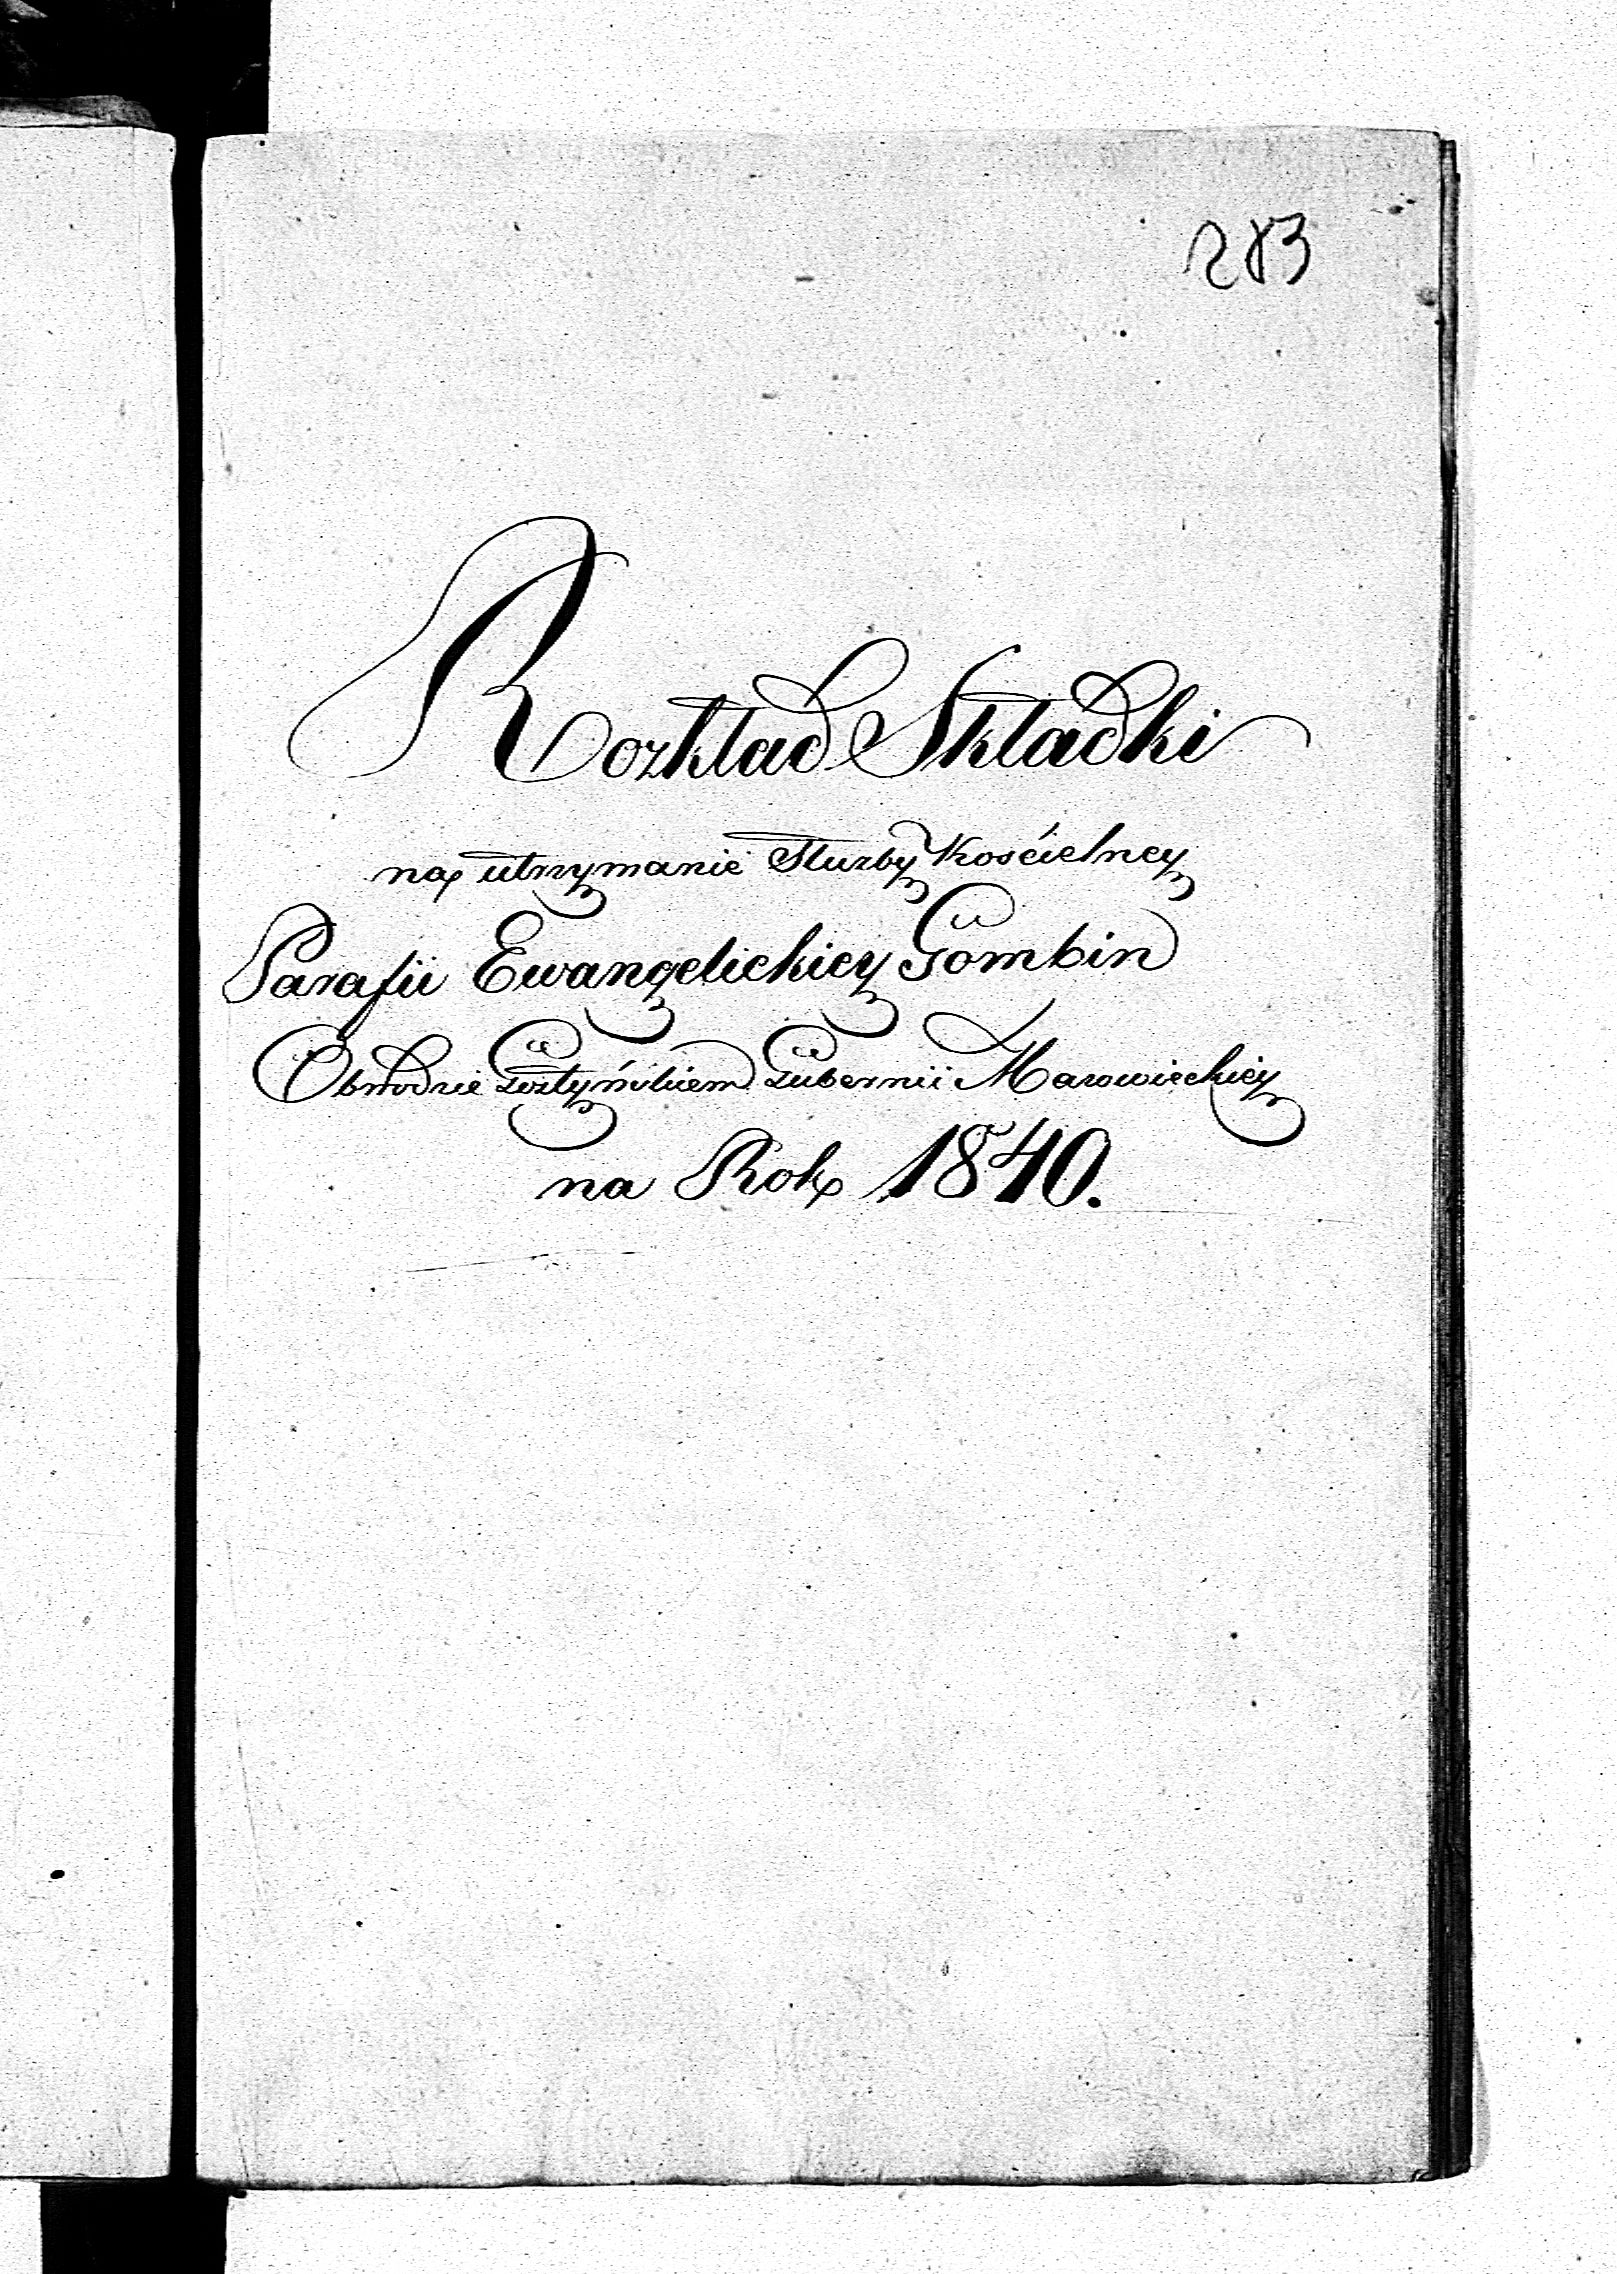 283
Rozkład Składki
na utrzymanie Służby Kościelney
Parafii Ewangelickiey Gombin
Obwodzie Gostyńskiem Gubernii Mazowieckiey
na Rok 1840.